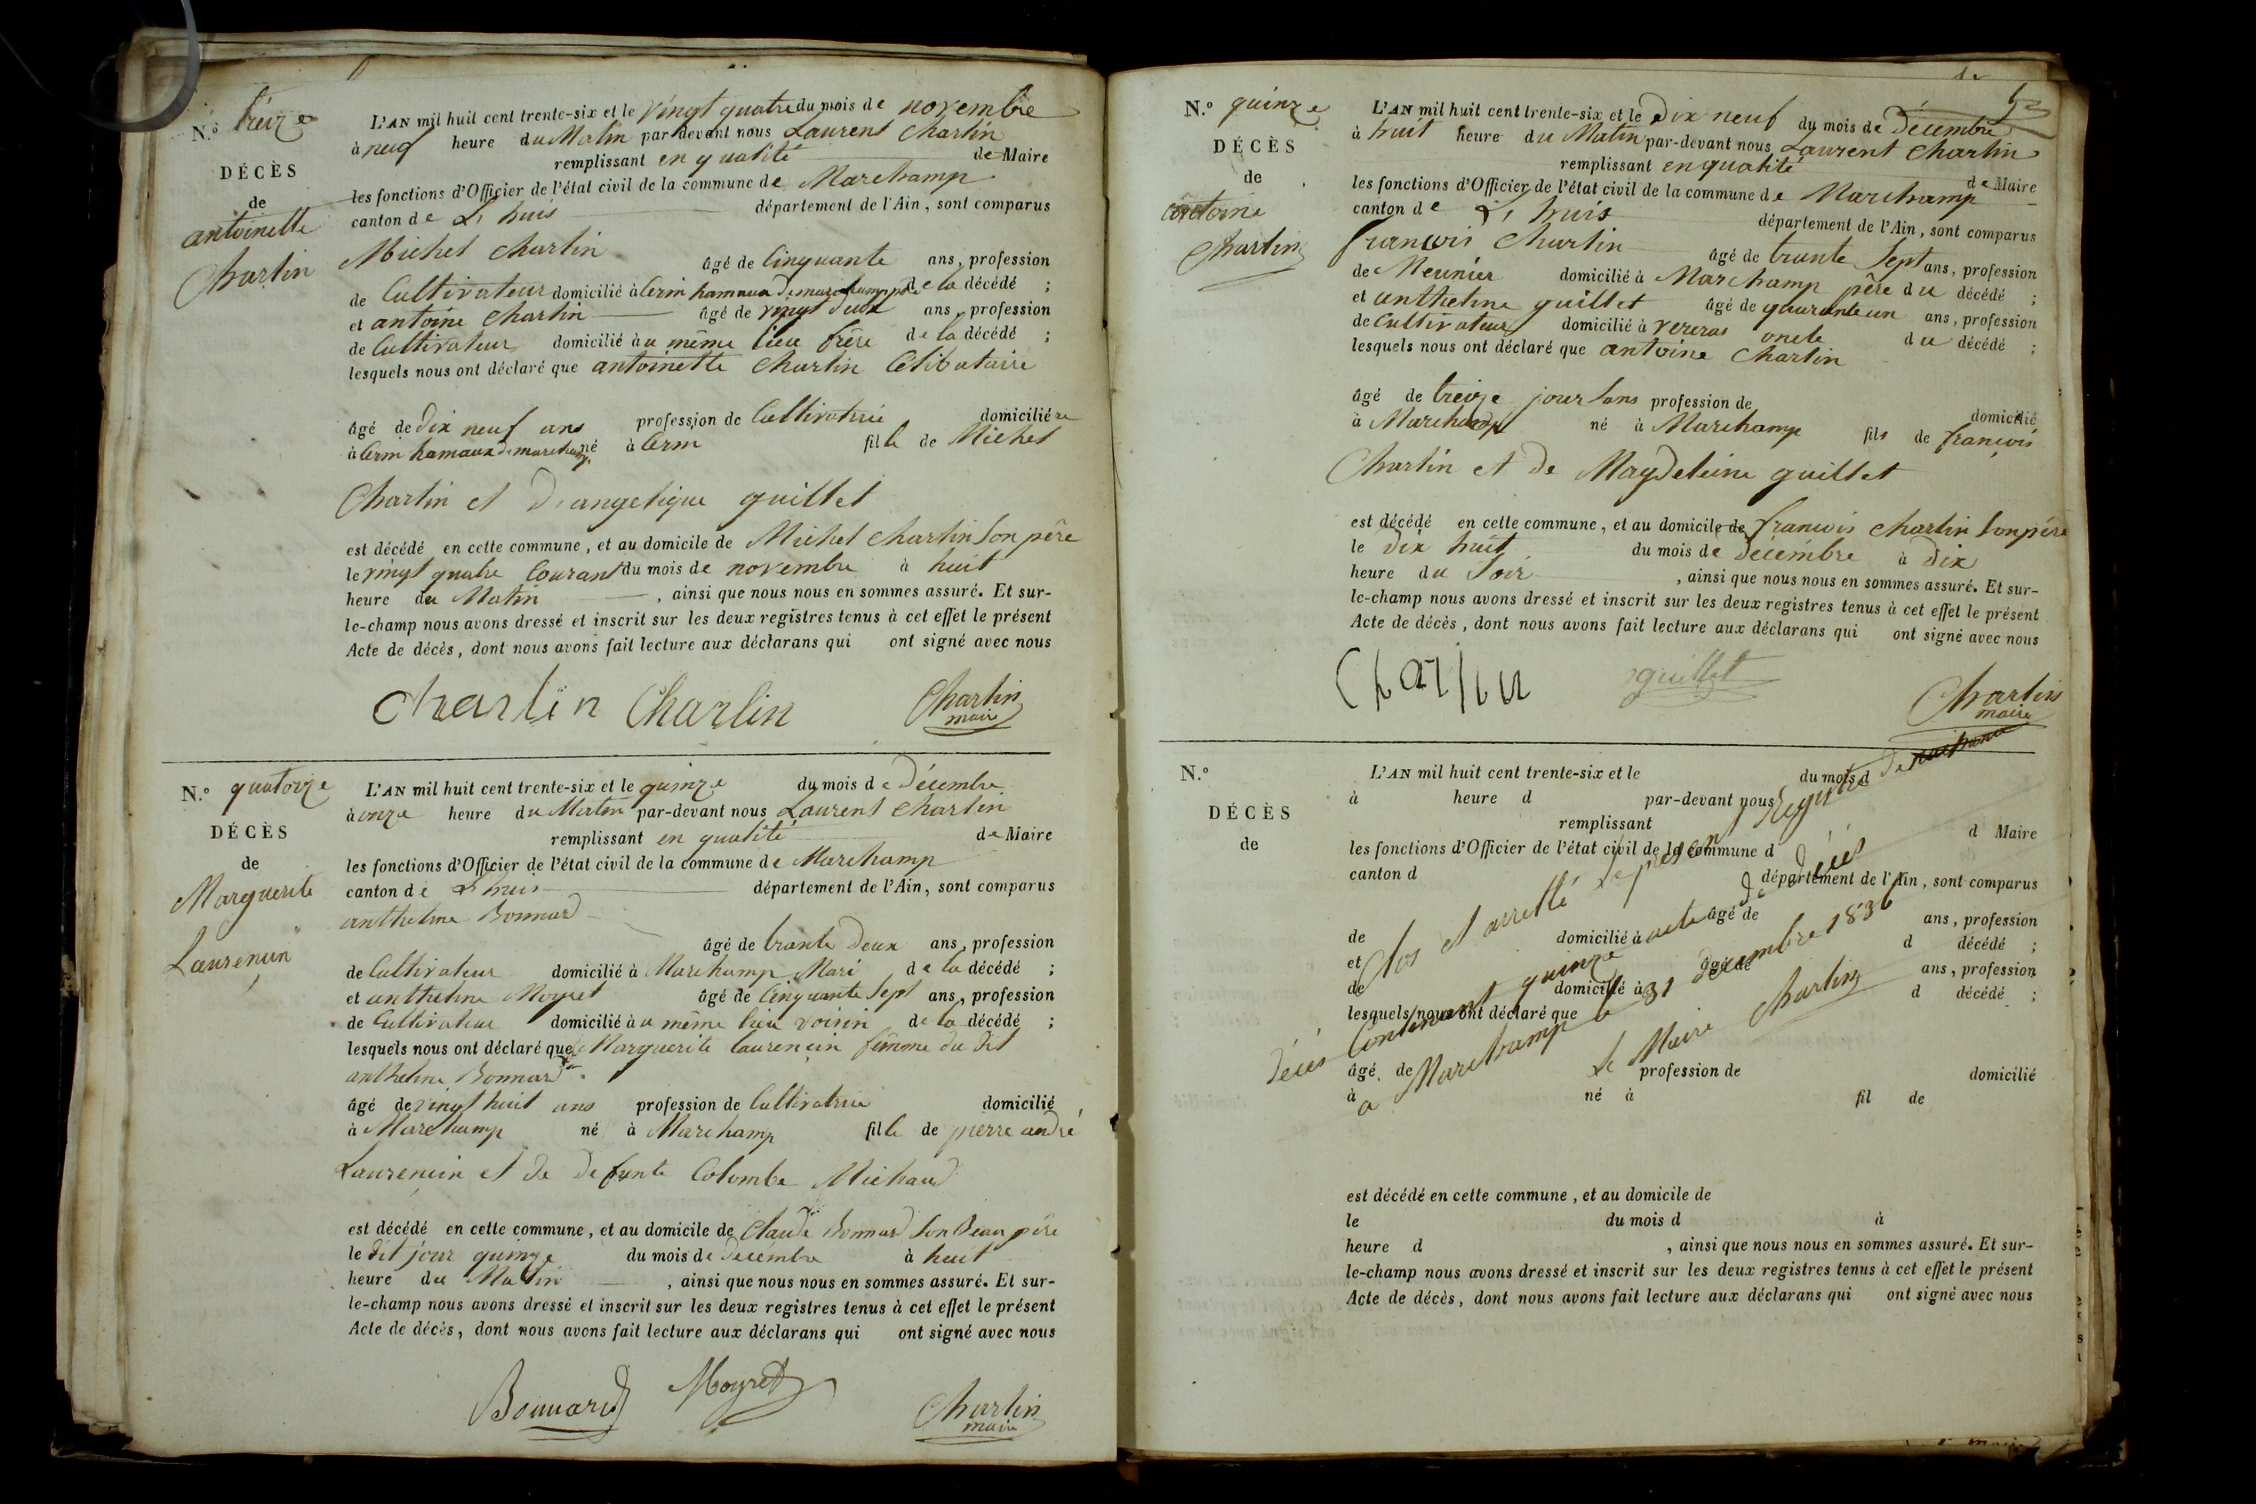 N.° treize
DÉCÈS
de
antoinette
Charlin
L'AN mil huit cent trente-six et le vingt quatre du mois de novembre
à neuf heure du Matin par devant nous Laurent Charlin
remplissant en qualité de Maire
les fonctions d'Officier de l'état civil de la commune de Marchamp
canton de L'huis département de l'Ain, sont comparus
Michel Charlin âgé de Cinquante ans, profession
de Cultivateur domicilié à Cerin hamaux de marchamp père de la décédé ;
et antoine Charlin âgé de vingt deux ans, profession
de Cultivateur domicilié à u même lieu frère de la décédé ;
lesquels nous ont déclaré que antoinette Charlin Célibataire
âgé de dix neuf ans profession de Cultivatrice domicilié ee
à Cerin hamaux de marchamp né à Cerin fille de Michel
Charlin et d'angelique guillet
est décédé en cette commune, et au domicile de Michel Charlin Son père
le vingt quatre Courant du mois de novembre à huit
heure du Matin , ainsi que nous nous en sommes assuré. Et sur-
le-champ nous avons dressé et inscrit sur les deux registres tenus à cet effet le présent
Acte de décès, dont nous avons fait lecture aux déclarans qui ont signé avec nous
Charlin Charlin Charlin
maire
N.° quatorze
DÉCÈS
de
Marguerite
Laurencin
L'AN mil huit cent trente-six et le quinze du mois de Décembre
à onze heure du Matin par-devant nous Laurent Charlin
remplissant en qualité de Maire
les fonctions d'Officier de l'état civil de la commune de Marchamp
canton de L'huis département de l'Ain, sont comparus
anthelme Bonnard
âgé de trante deux ans, profession
de Cultivateur domicilié à Marchamp Mari de la décédé ;
et anthelme Moyret âgé de Cinquante Sept ans, profession
de Cultivateur domicilié à u même lieu voisin de la décédé ;
lesquels nous ont déclaré que Marguerite laurencin femme du dit
anthelme Bonnard
âgé de vingt huit ans profession de Cultivatrice domicilié
à Marchamp né à Marchamp fille de pierre andré
Laurencin et de defunte Colombe Michaud
est décédé en cette commune, et au domicile de Claude Bonnard Son Beau père
le dit jour quinze du mois de decembre à huit
heure du Matin , ainsi que nous nous en sommes assuré. Et sur-
le-champ nous avons dressé et inscrit sur les deux registres tenus à cet effet le présent
Acte de décès, dont nous avons fait lecture aux déclarans qui ont signé avec nous
Bonnard Moyret Charlin
maire
N.° quinze
DÉCÈS
de
antoine
Charlin
L'AN mil huit cent trente-six et le Dix neuf du mois de Décembre
à huit heure du Matin par-devant nous Laurent Charlin
remplissant en qualité de Maire
les fonctions d'Officier de l'état civil de la commune de Marchamp
canton de L'huis département de l'Ain, sont comparus
francois Charlin âgé de trante Sept ans, profession
de Meunier domicilié à Marchamp père du décédé ;
et anthelme guillet âgé de quarante un ans, profession
de Cultivateur domicilié à oncle du décédé ;
lesquels nous ont déclaré que antoine Charlin
âgé de treize jour Sans profession de domicilié
à Marchamp né à Marchamp fils de francois
Charlin et de Magdeleine guillet
est décédé en cette commune, et au domicile de francois Charlin Son père
le dix huit du mois de décembre à dix
heure du Soir , ainsi que nous nous en sommes assuré. Et sur-
le-champ nous avons dressé et inscrit sur les deux registres tenus à cet effet le présent
Acte de décès, dont nous avons fait lecture aux déclarans qui ont signé avec nous
Charlin guillet Charlin
maire
N.°
DÉCÈS
de
L'AN mil huit cent trente-six et le du mois d
à heure d par-devant nous
remplissant d Maire
les fonctions d'Officier de l'état civil de la commune d
canton d département de l'Ain, sont comparus
âgé de ans, profession
de domicilié à d décédé ;
et âgé de ans, profession
de domicilié à d décédé ;
lesquels nous ont déclaré que
âgé de profession de domicilié
à né à fil de
est décédé en cette commune, et au domicile de
le du mois d à
heure d , ainsi que nous nous en sommes assuré. Et sur-
le-champ nous avons dressé et inscrit sur les deux registres tenus à cet effet le présent
Acte de décès, dont nous avons fait lecture aux déclarans qui ont signé avec nous
Clos et arretté le présent Registre de
décès Contenant quinze acte de décès
a Marchamp le 31 décembre 1836
Le Maire Charlin